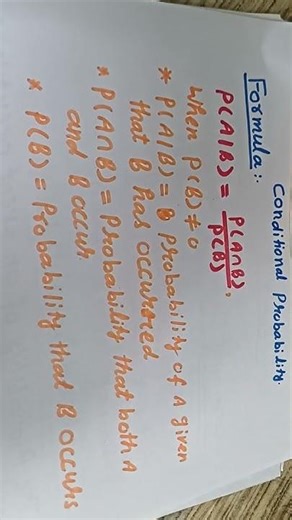 Conditional Probability.
Formula:-
P(A|B) = P(A∩B)/P(B),
when P(B) ≠ 0
* P(A|B) = B Probability of A given
that B has occurred
* P(A∩B) = Probability that both A
and B occur.
* P(B) = Probability that B occurs